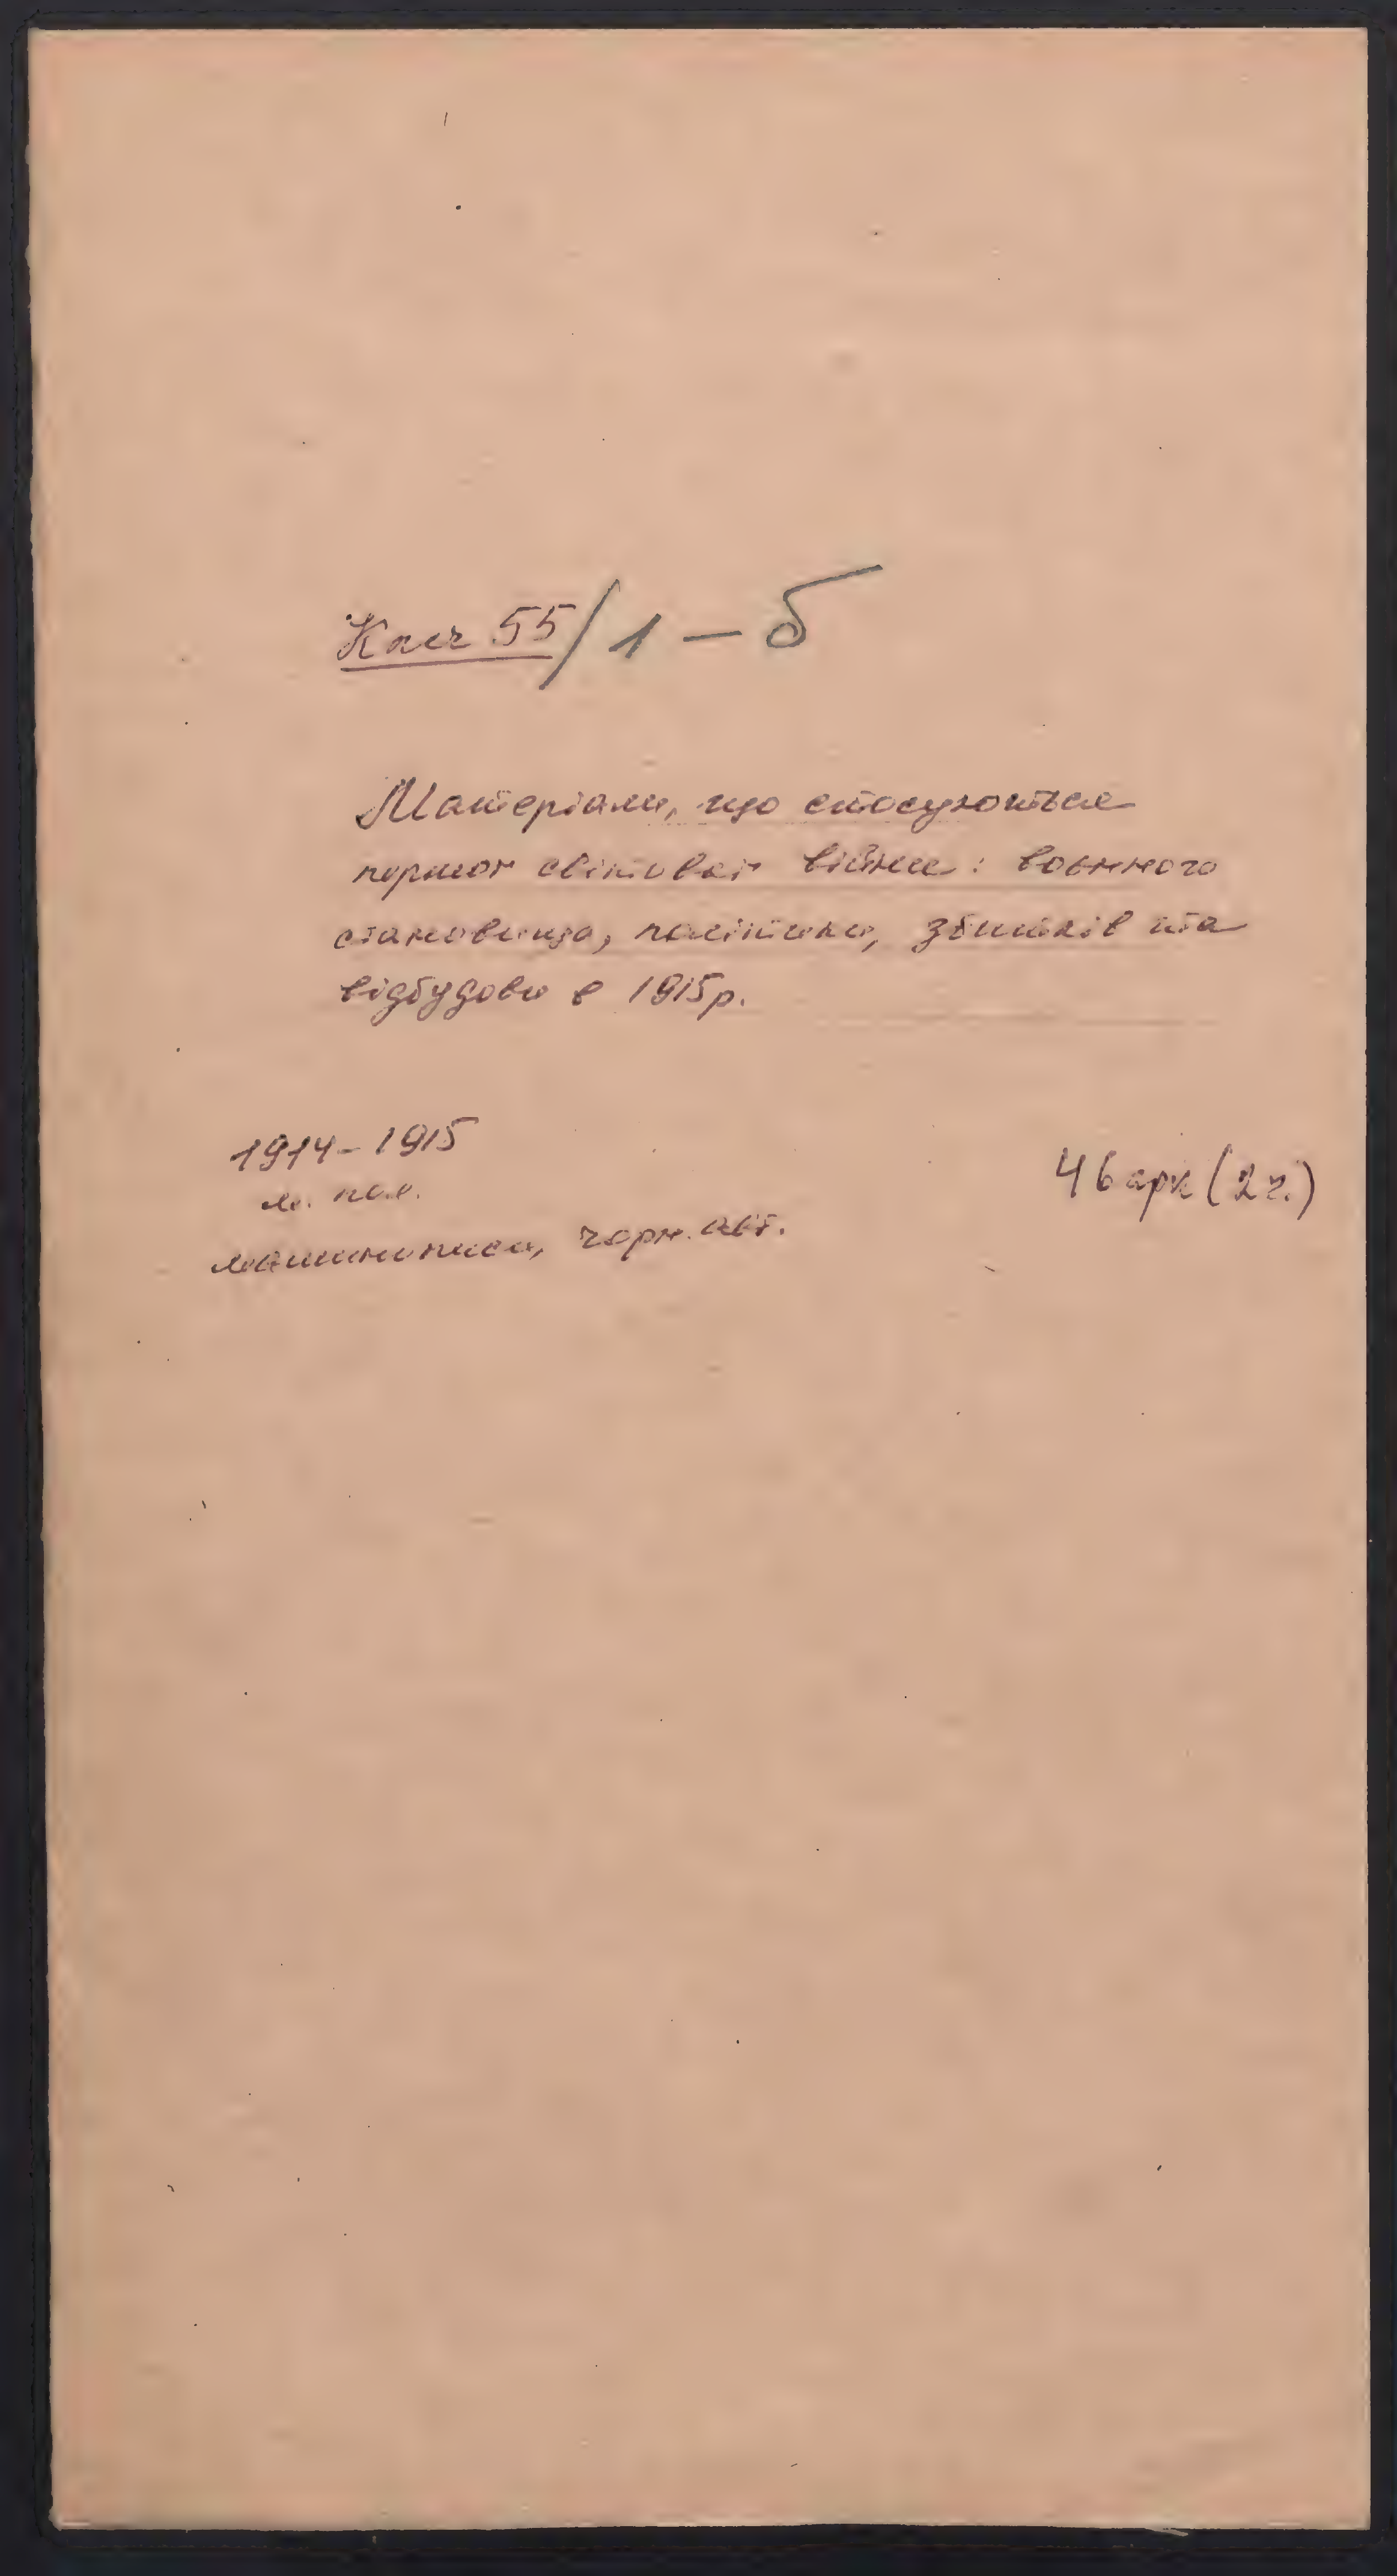 Клеч 55/1-б
Матеріали, що стосуються
першої світової війни: воєнного
становища, політики, збитків та
відбудови в 1915р.
1914-1915
м. пол.
46 арк (2 г.)
машинописи, чорн. авт.